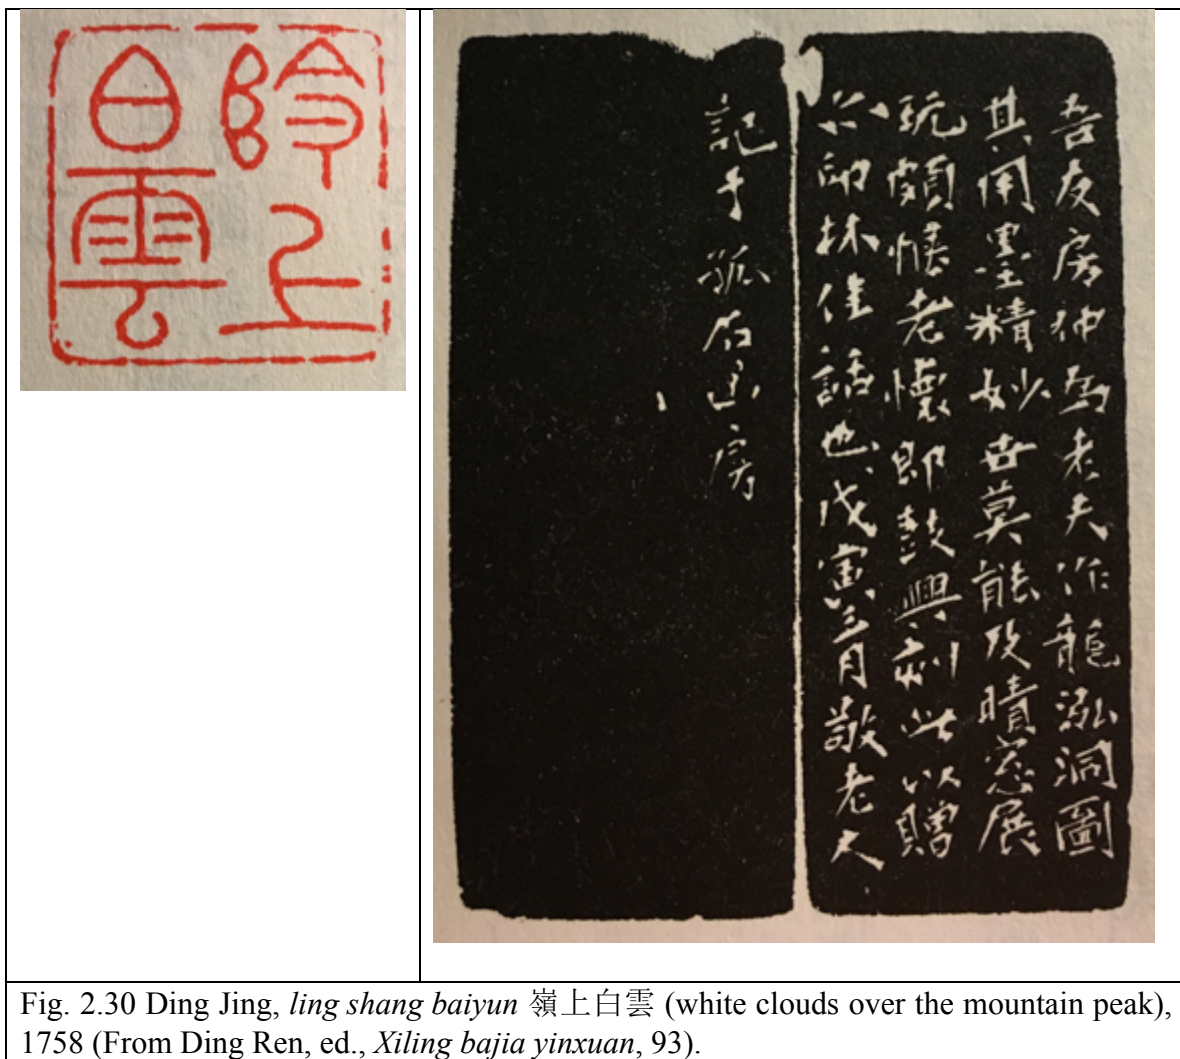 阾上
白雲
吾友房仲為老夫作龍泓洞圖
其用墨精妙世莫能及晴窓展
玩頗愜老懷即鼓興刻此以贈
亦印林佳話也戊寅三月敬老
記于孤石山房
Fig. 2.30 Ding Jing, ling shang baiyun 嶺上白雲 (white clouds over the mountain peak),
1758 (From Ding Ren, ed., Xiling bajia yinxuan, 93).